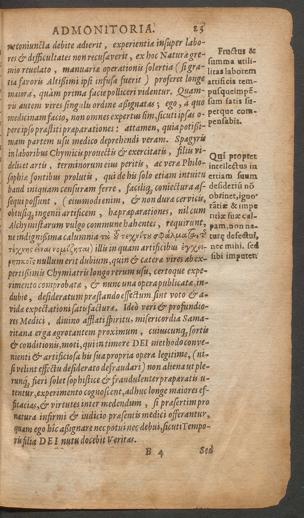 ADMONITORIA. 23
coniuncta debite adierit, experientia insuper labo-
res & difficultates non recusaverit, ex hoc Naturæ gre-
mio revelato, manuaria operationis solertia (si gra-
tia favoris Altissimi ipsi infusa fuerit) proferet longe
maiora, quàm prima facie polliceri videntur. Quam-
vis autem vires singulu ordine assignatas; ego, à quo
medicinam facio, non omnes expertus sim, sicuti ipsas o-
pere ipso præstiti præparationes: attamen, quia potissi-
mam partem usu medico deprehendi veram. Spagyri
in laboribus Chymicis provectis & exercitatis, filiis vi-
delicet artis, terminorum eius peritis, ac veræ Philo-
sophiæ fontibus prolutis, qui de his solo etiam intuitu
haud iniquam censuram ferre, facileq; coniectura as-
sequi possunt, (eiusmodi enim, & non dura cervicis,
obtusiq; ingenii artificem, hæ præparationes, nil cum
Alchymistarum vulgo commune habentes, requirunt,
ne indignissima calumnia
illi in quam artificibus
nullum erit dubium, quin & cætera vires ab ex-
pertissimis Chymiatris longo rerum usu, certoque expe-
rimento comprobata, & nunc una opera publicata, in-
dubie, desideratum præstando effectum sint voto & a-
vida expectationi satisfactura. Ideò veri & profundio-
res Medici, divino afflati spiritu, misericordia Sama-
ritana erga agrotantem proximum, cuiuscunq; sortis
& conditionis, moti, qui in timore DEI methodo conve-
nienti & artificiosa his sua propria opera legitime, (ni-
si velint effectu desiderato defraudari) non aliena ut ple-
runq; fieri solet sophisticè & fraudulenter præparatis u-
tentur, experimento cognoscent, adhuc longe maiores ef-
ficacias, & virtutes inter medendum, si præsertim pro
natura infirmi & iudicio præsentis medici offerantur,
quam ego hic assignare nec potui nec debui, sicuti Tempo-
ris filia DEI nutu docebit Veritas.
B 4 Sed
Fructus &
summa utili-
tas laborem
artificis tem-
pusque impë-
sum satis su-
perque com-
pensabit.
Qui propter
intellectus in
etiam suum
desideriũ nõ
obtinet, igno-
rãtiæ & impe
ritiæ suæ cul-
pam, non na-
turæ defectui,
nec mihi, sed
sibi imputet